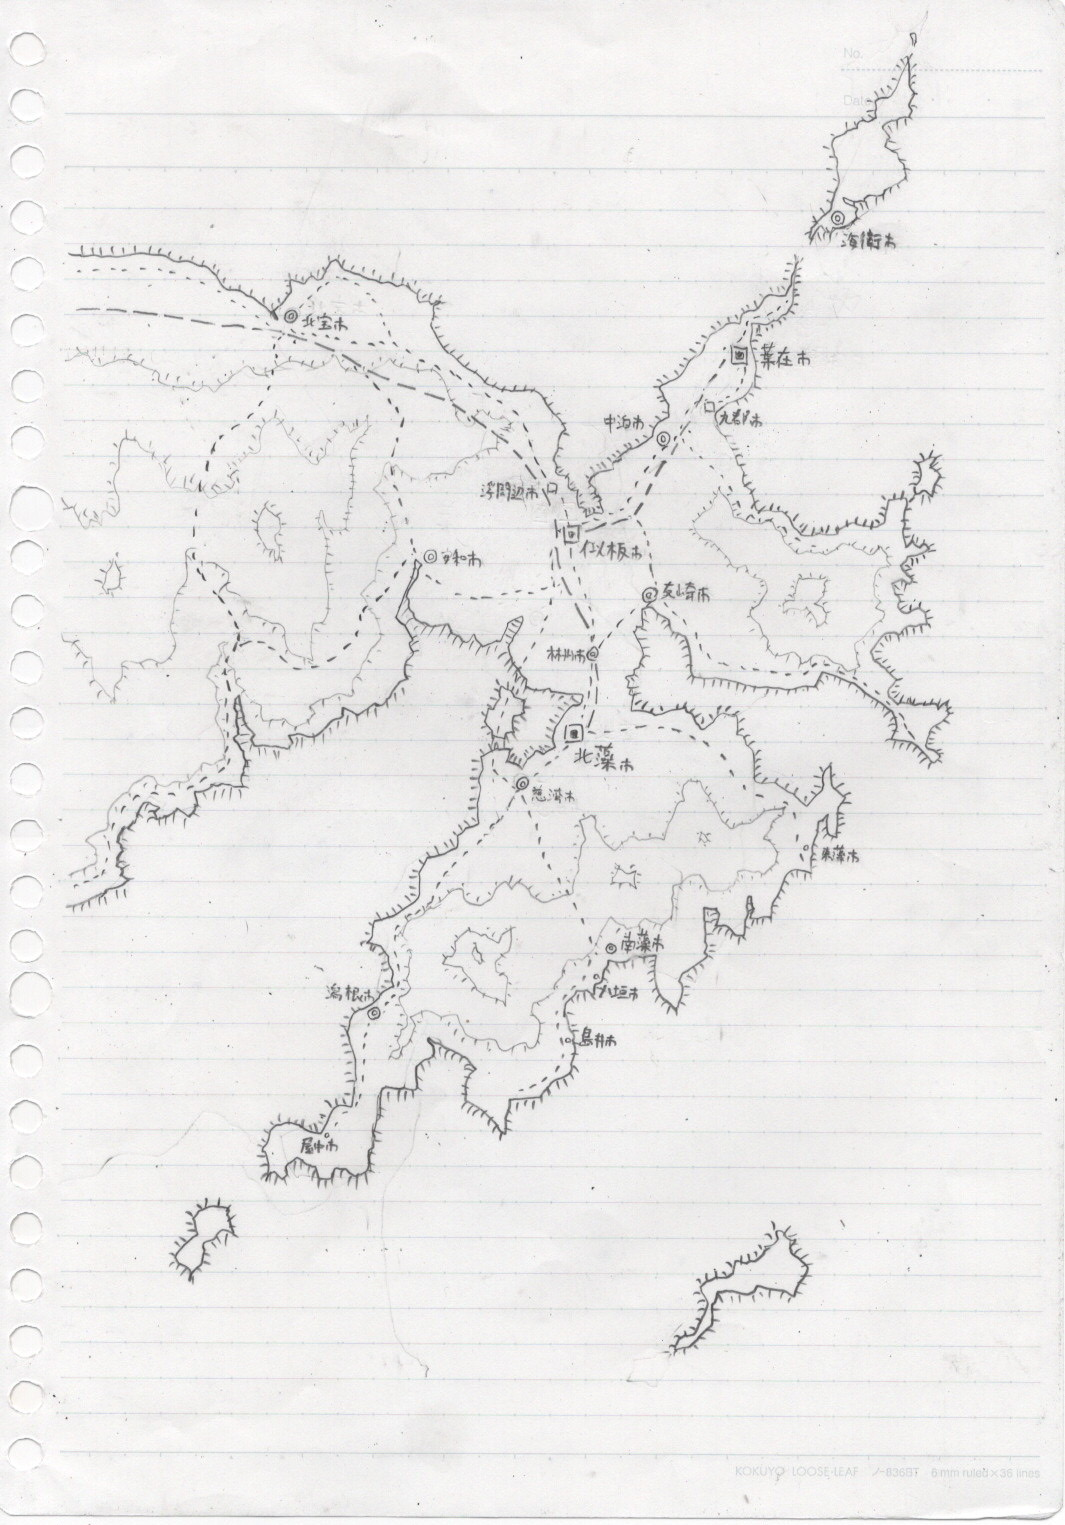 No.
Date
海衛市
北宝市
葉在市
九郡市
中泊市
浮間辺市
似板市
友崎市
林川市
北藻市
慈湾市
東藻市
南藻市
八垣市
潟根市
島井市
屋中市
KOKUYO LOOSE-LEAF ノ-836BT 6mm ruled×36 lines